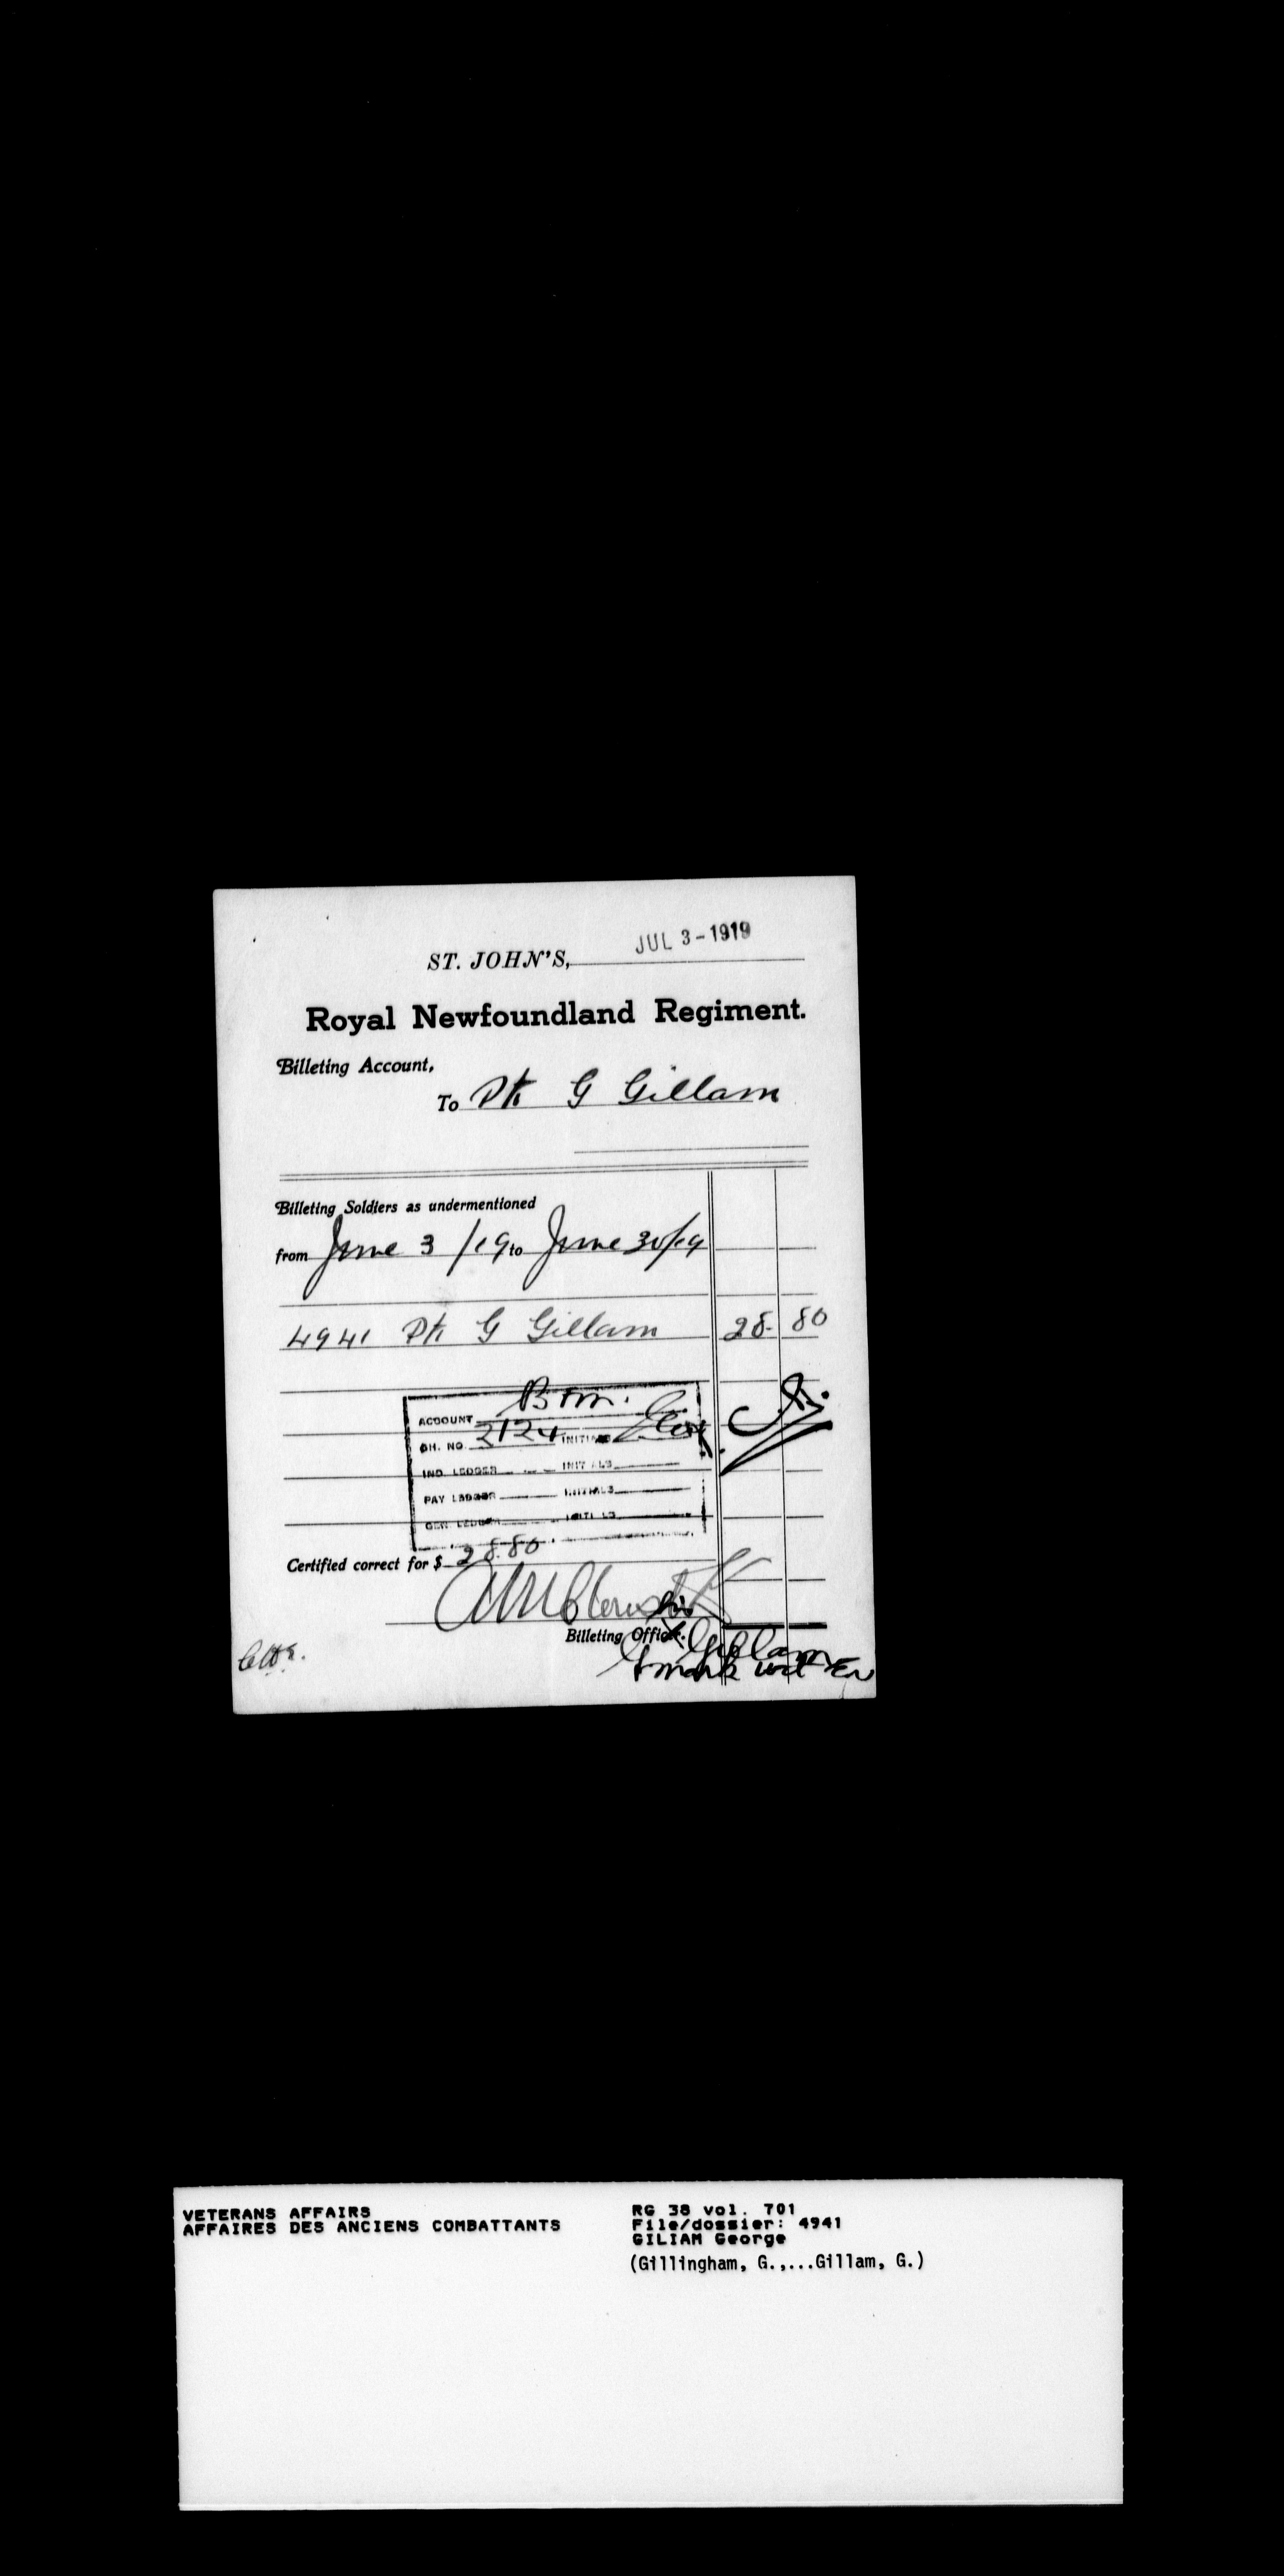 JUL 3-1919
ST. JOHN'S,
Royal Newfoundland Regiment.
Billeting Account,
To Pte G Gillam
Billeting Soldiers as undermentioned
from June 3 /19 to June 30/19
4941 Pte G Gillam 28. 80
ACCOUNT
CH. NO. 2124 INITIALS
IND. LEDGER INITIALS
PAY LEDGER INITIALS
GEN. LEDGER INITIALS
Certified correct for $ 28.80
his
Billeting Officer.
G X Gillam
mark
VETERANS AFFAIRS
AFFAIRES DES ANCIENS COMBATTANTS
RG 38 vol. 701
File/dossier: 4941
GILIAM George
(Gillingham, G.,...Gillam, G.)